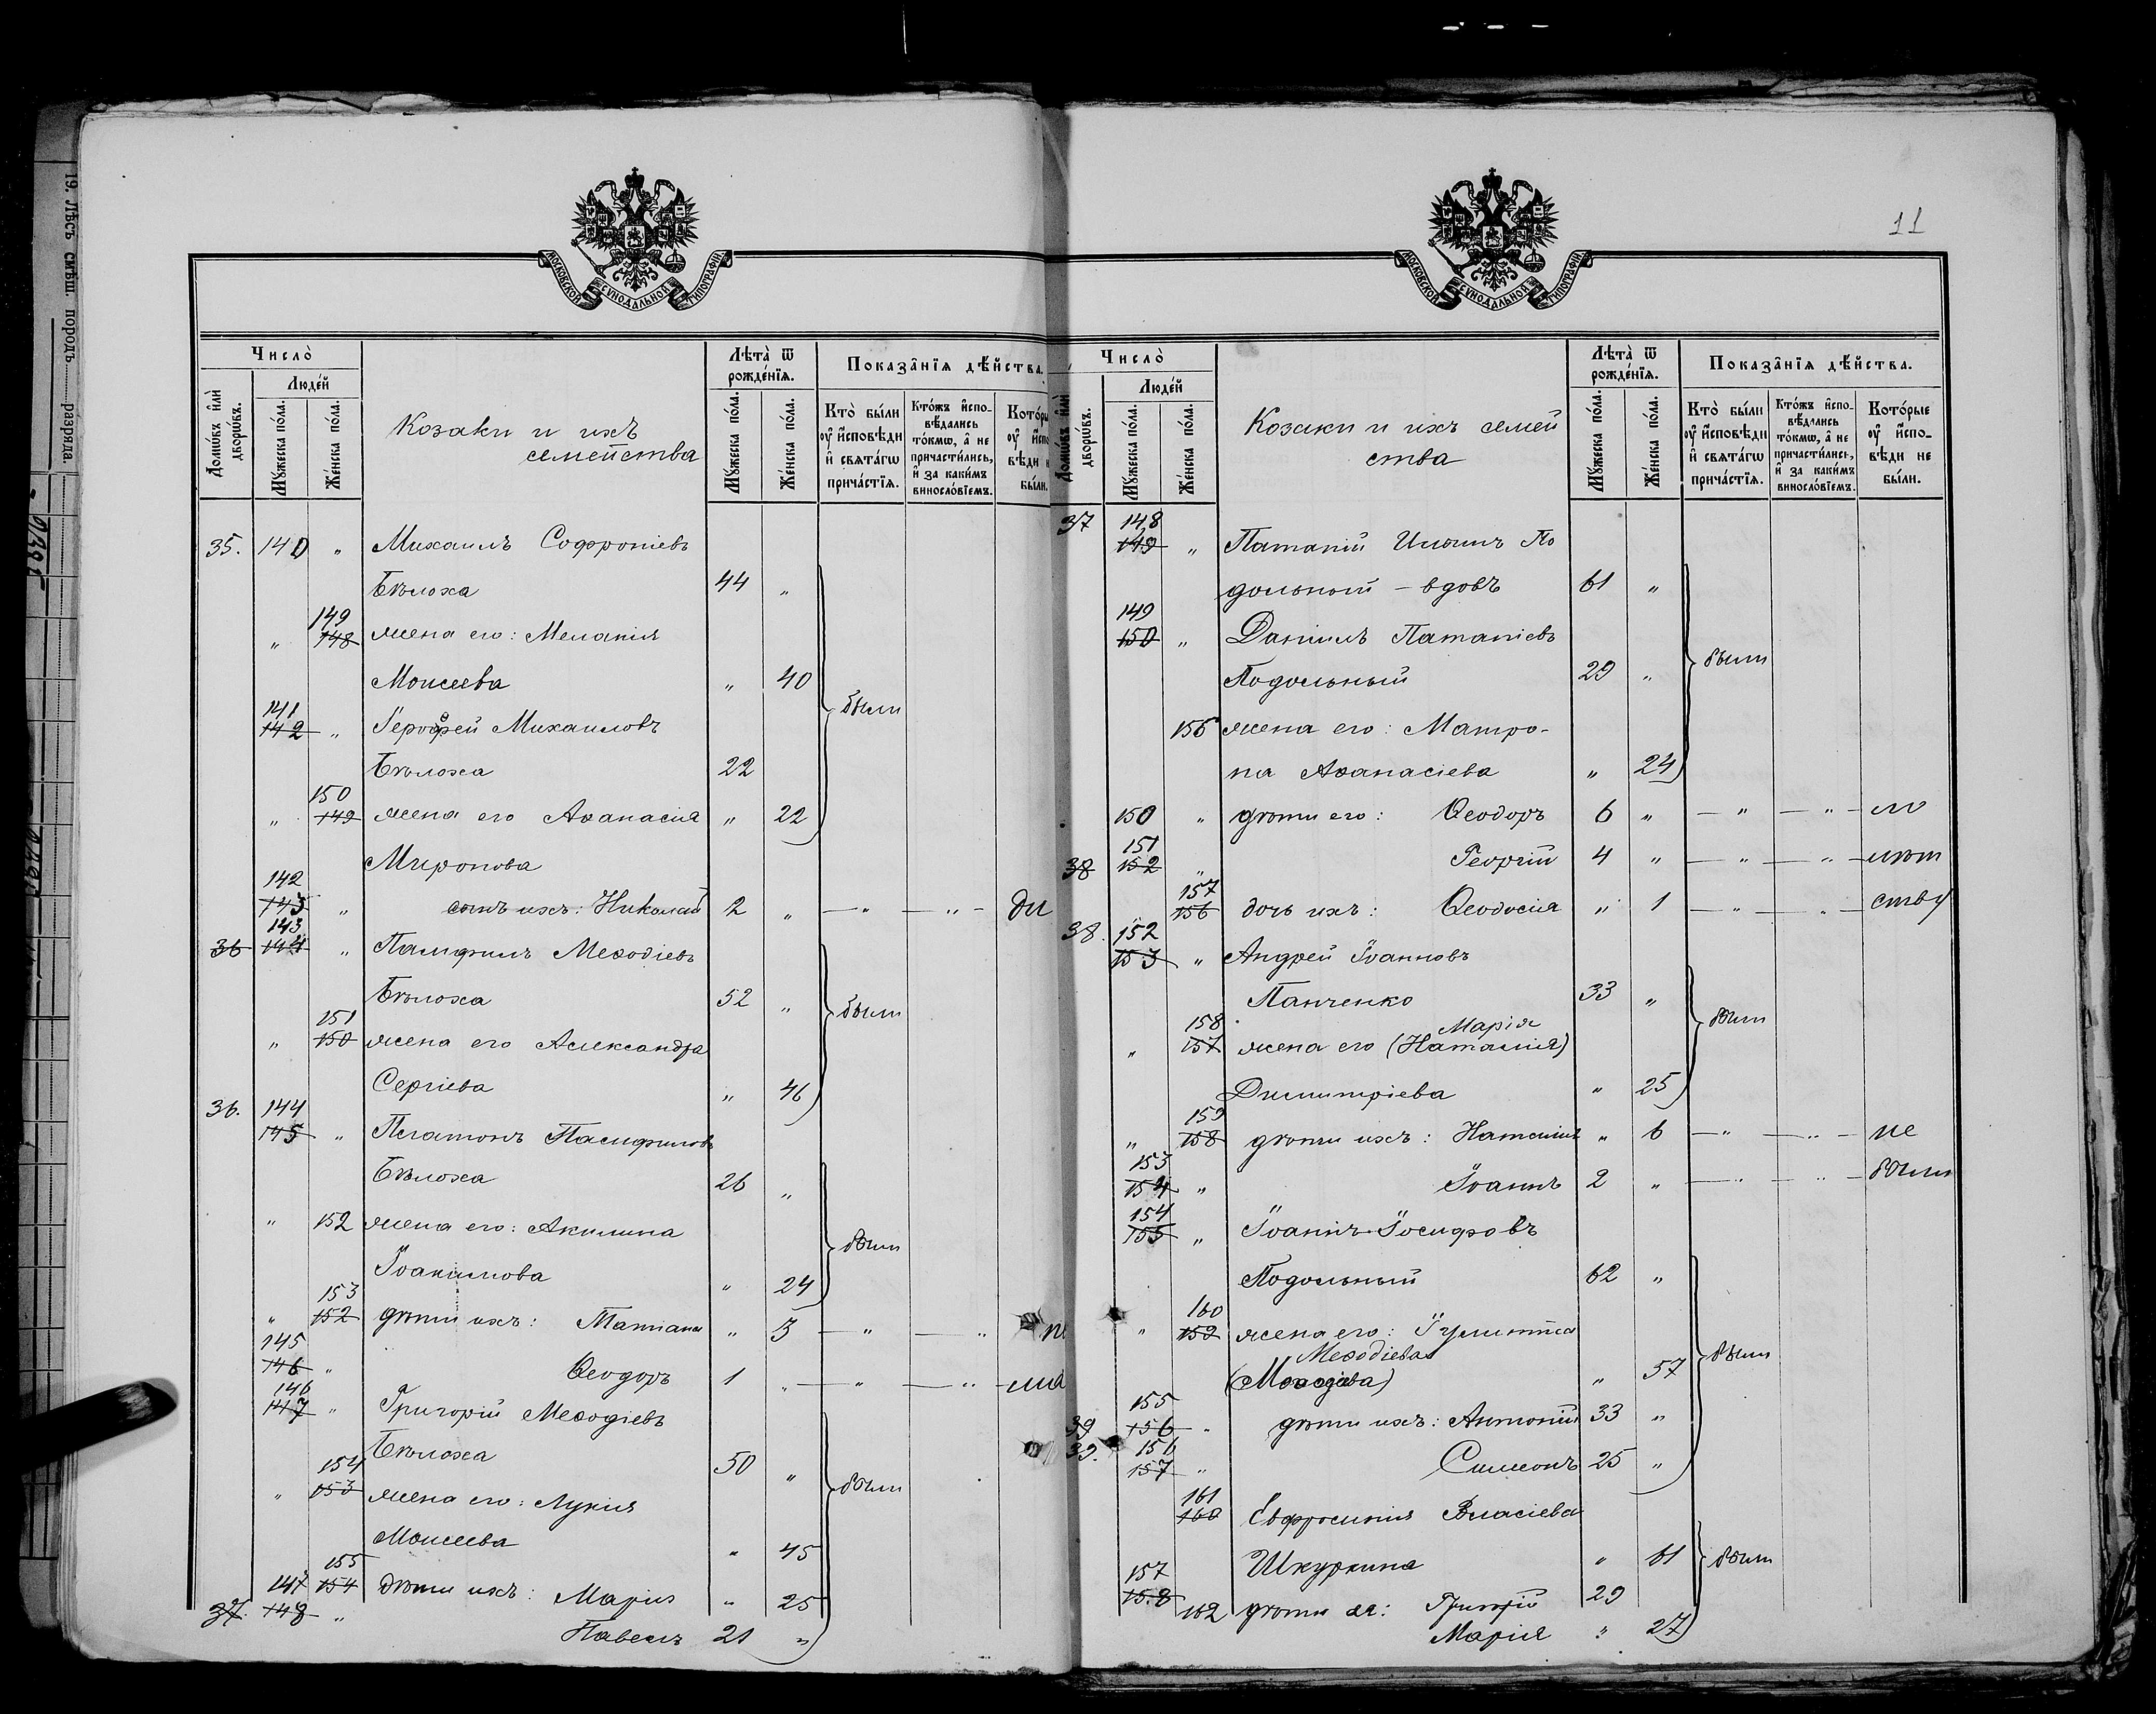 19. Лѣсъ смѣш. породъ разряда.
11
МОСКОВСКОЙ СУНОДАЛЬНОЙ ТИПОГРАФІИ
Число̀
Домѡ́въ и҆лѝ дворѡ́въ.
Люде́й
Мꙋ́жеска по́ла.
Же́нска по́ла.
Козаки и ихъ
семейства
Лѣта̀ ѿ рожде́нїѧ.
Мꙋ́жеска по́ла.
Же́нска по́ла.
Показа̑нїѧ дѣ́йства.
Кто̀ бы́ли оу҆ и҆сповѣ́ди и҆ свѧта́гѡ прича́стїѧ.
Кто́жъ и҆спо-вѣ́дались то́кмѡ, а҆ не причасти́лись, и҆ за каки́мъ винословїемъ.
35. 140 „ Михаилъ Софроніевъ
Бѣлоха 44 „
149
„ 148 жена его: Меланія
Моисеева „ 40
были
141
142 „ Герофей Михаиловъ
Бѣлоха 22
150
„ 149 жена его Аѳанасія „ 22
Миронова
142
143 „ сынъ ихъ: Николай 2 „ — „ — „ — ди
143
36 144 „ Памфилъ Меѳодіевъ
Бѣлоха 52 „ были
151
„ 150 жена его Александра
Сергіева „ 46
36. 144
145 „ Платонъ Памфиловъ
Бѣлоха 26 „
„ 152 жена его: Акилина
были
Іоакимова „ 24
153
„ 152 дѣти ихъ: Татіана „ 3 — „ — „
145
146 „ Ѳеодоръ 1 „ — „ — „ —
146
147 „ Григорій Меѳодіевъ
Бѣлоха 50 „
154
„ 153 жена его: Лукія были
Моисеева „ 45
155
147 154 дѣти ихъ: Марія „ 25
37. 148 „
Павелъ 21 „
МОСКОВСКОЙ СУНОДАЛЬНОЙ ТИПОГРАФІИ
Число̀
Домѡ́въ и҆лѝ дворѡ́въ.
Люде́й
Мꙋ́жеска по́ла.
Же́нска по́ла.
Козаки и ихъ семей
ства
Лѣта̀ ѿ рожде́нїѧ.
Мꙋ́жеска по́ла.
Же́нска по́ла.
Показа̑нїѧ дѣ́йства.
Кто̀ бы́ли оу҆ и҆сповѣ́ди и҆ свѧта́гѡ прича́стїѧ.
Кто́жъ и҆спо-вѣ́дались то́кмѡ, а҆ не причасти́лись, и҆ за каки́мъ винословїемъ.
Кото́рые оу҆ и҆спо-вѣди не бы́ли.
37 148
149 „ Патапій Ильинъ По
дольный – вдовъ 61 „
149
150 „ Даніилъ Патапіевъ
были
Подольный 29 „
156 жена его: Матро-
на Аѳанасіева „ 24
150 „ дѣти его: Ѳеодоръ 6 „ — „ — „ — ло
151
38 152 „ Георгій 4 „ — „ — „ — лѣт
157
156 дочь ихъ: Ѳеодосія „ 1 — „ — „ — ству
38. 152
153 „ Андрей Іоанновъ
Панченко 33 „
были
158 Марія
„ 157 жена его (Наталія)
Димитріева „ 25
159
„ 158 дѣти ихъ: Наталія „ 6 — „ — „ — не
153
154 „ Іоаннъ 2 „ — „ — „ — были
154
155 „ Іоаннъ Іосифовъ
Подольный 62 „
160
„ 159 жена его: Іулитта
Меѳодіева были
57
155
39 156 „ дѣти ихъ: Антоній 33 „
39. 156
157 „ Симеонъ 25 „
161
160 Евфросинія Власіева
Шкуркина „ 61 были
157
158 162 дѣти ея: Григорій 29
Марія „ 27